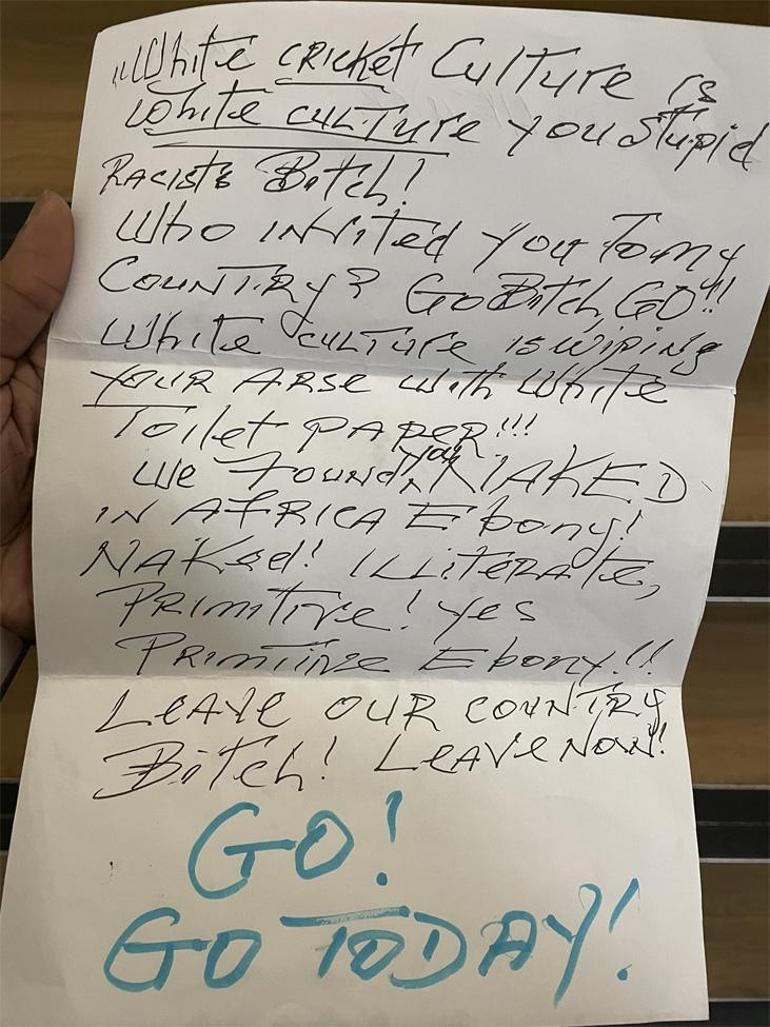 "White CRicket Culture is
White CULTURE you Stupid
RACISTS Bitch!
Who INVITED you To my
COUNTRY? Go Bitch, GO!!!
White CULTURE is WIPING
YOUR ARSE with White
Toilet PAPER!!!
We Found you NAKED
IN AFRICA Ebony!
NAKed! ILLITERATE,
PRIMITIVE! yes
PRIMITIVE Ebony!!
LEAVE OUR COUNTRY
Bitch! LEAVE NOW!
GO!
GO TODAY!